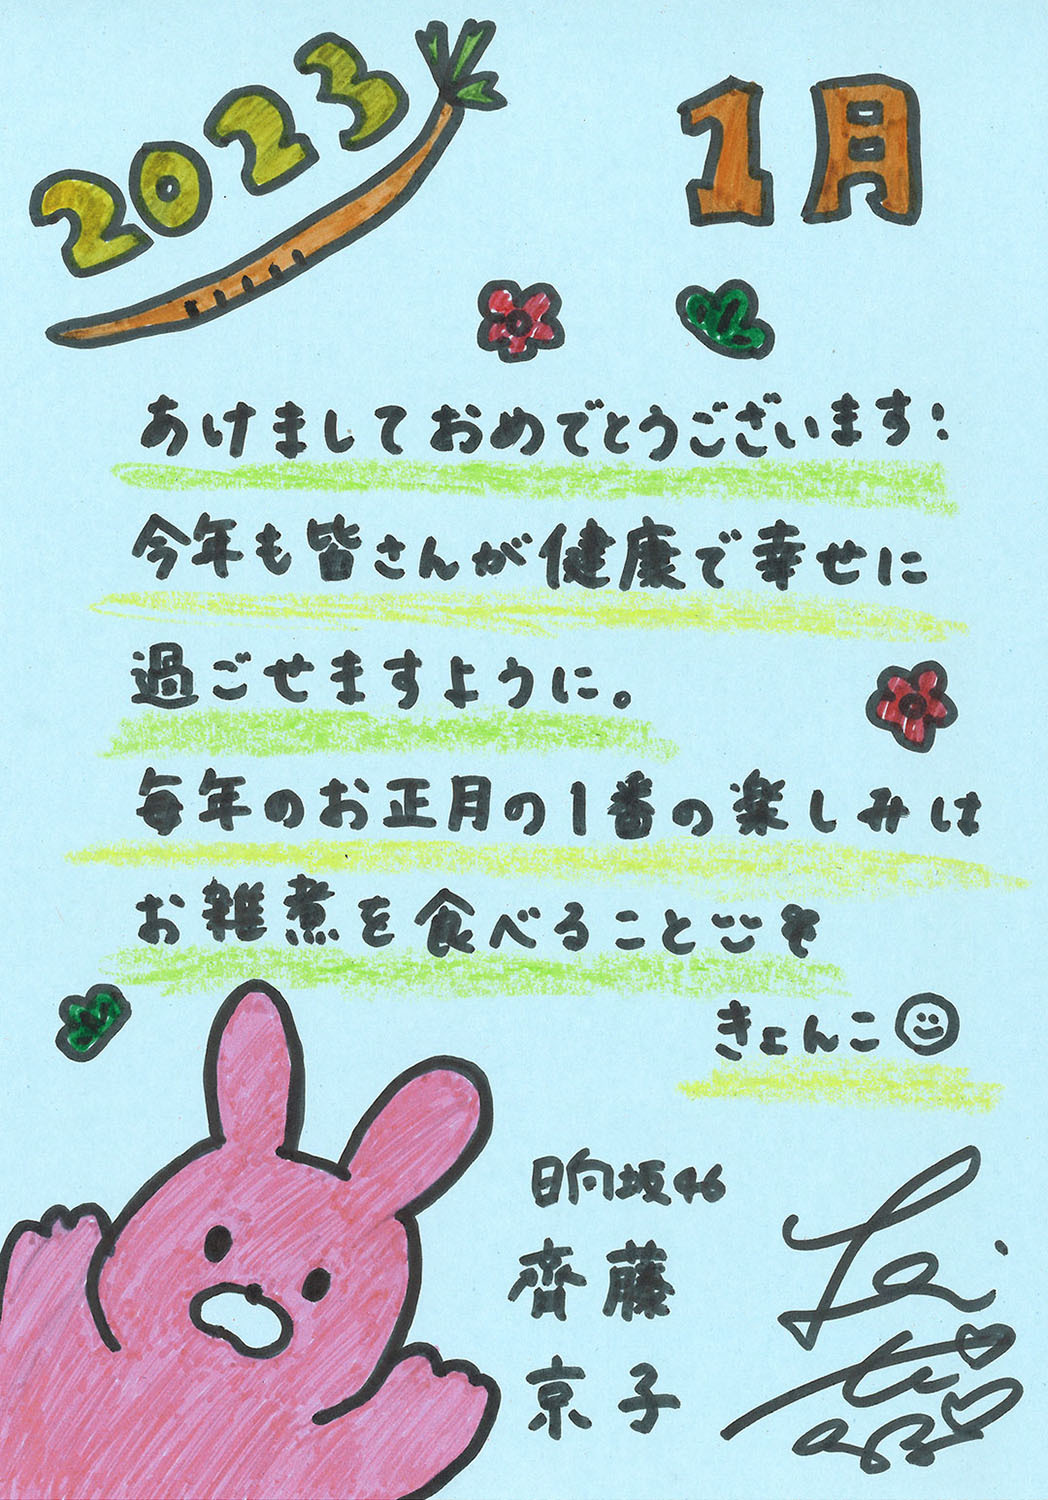 2023
1月
あけましておめでとうございます：
今年も皆さんが健康で幸せに
過ごせますように。
毎年のお正月の1番の楽しみは
お雑煮を食べること
きょんこ
日向坂46
齊藤
京子